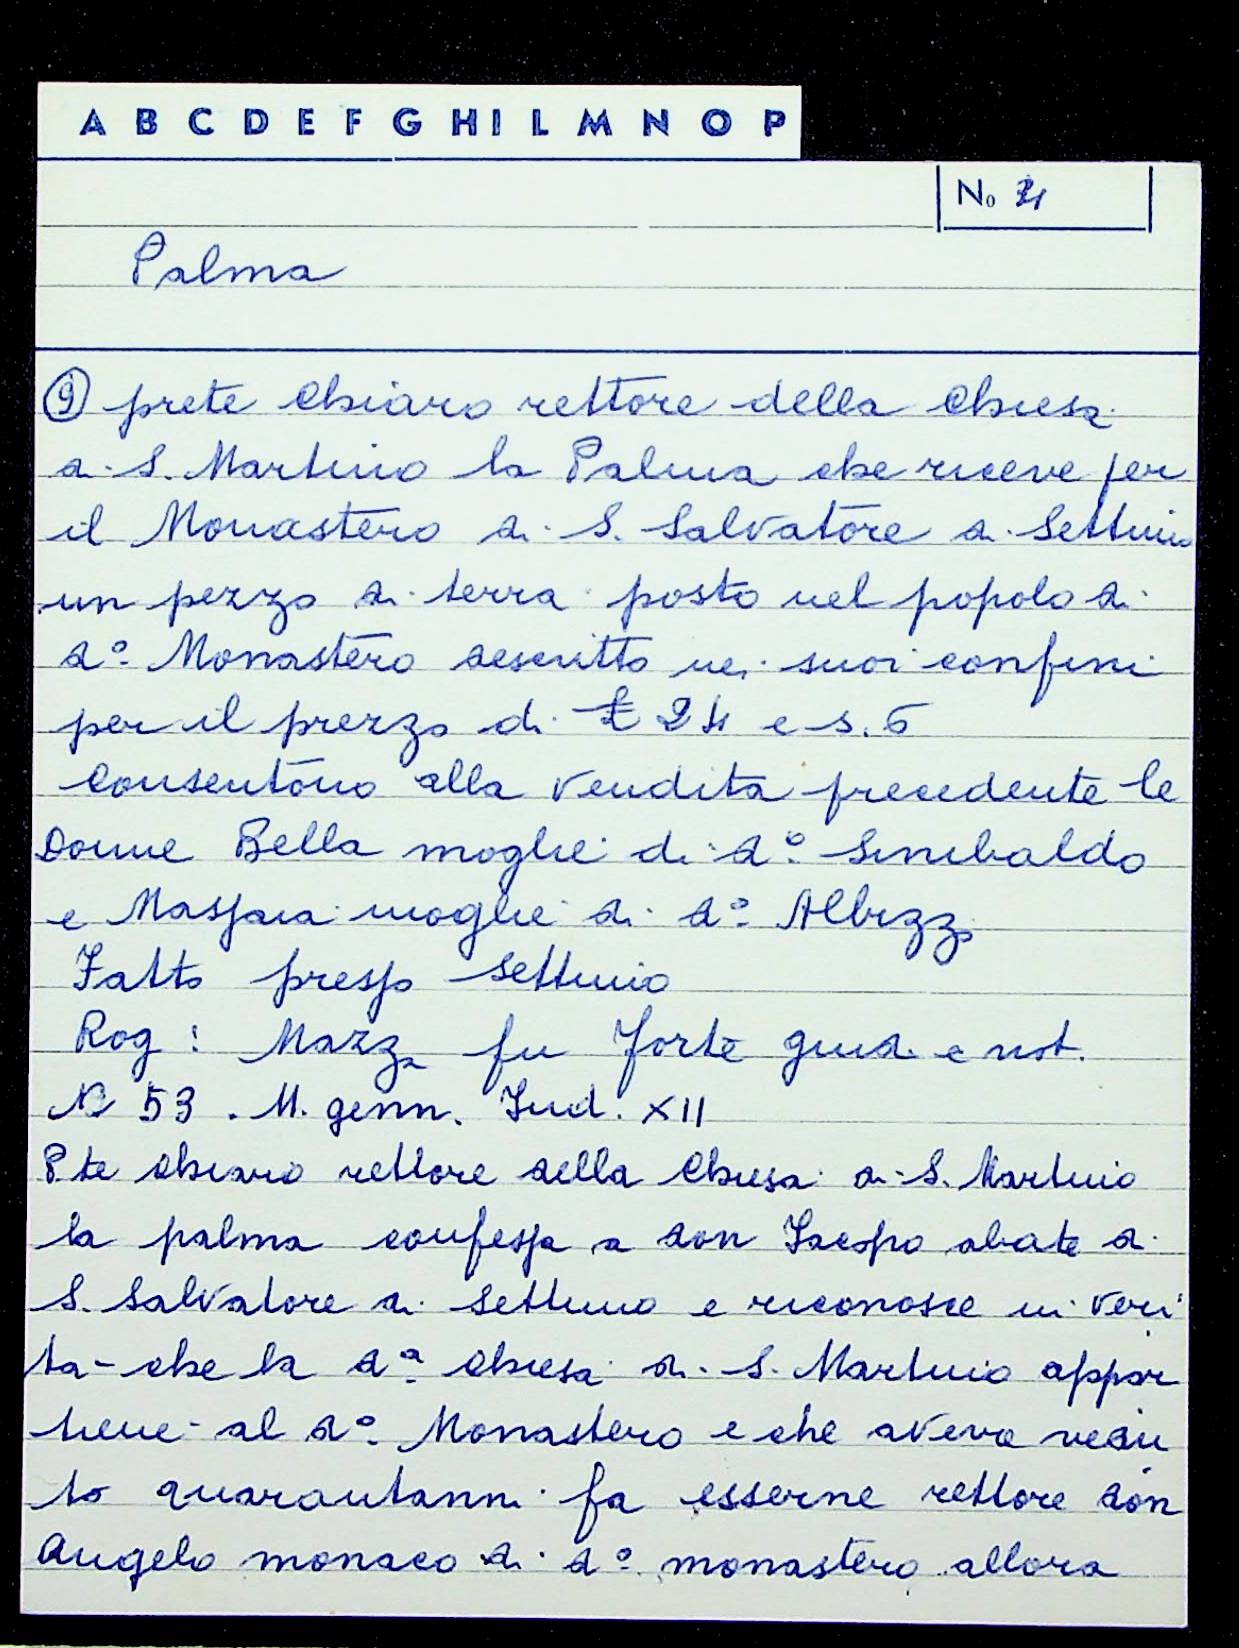 A B C D E F G H I L M N O P
No 21
Palma
9) prete Chiaro rettore della Chiesa
di S. Martino la Palma che riceve per
il Monastero di S. Salvatore a Settimo
un pezzo di terra posto nel popolo di
do. Monastero descritto nei suoi confini
per il prezzo di £ 24 e s. 6
Consentono alla vendita precedente le
Donne Bella moglie di do. Sinibaldo
e Maspaia moglie di do. Albizzo
Fatto presso Settimo
Rog: Mazza fu Forte giud. e not.
N 53. 11. genn. Ind. XII
P.te Chiaro rettore della Chiesa di S. Martino
la palma confessa a don Iacopo abate di
S. Salvatore di Settimo e riconosce in veri
ta - che la da. Chiesa di S. Martino appar
tiene al do. Monastero e che aveva vedu
to quarantanni fa esserne rettore don
Angelo monaco di do. monastero allora